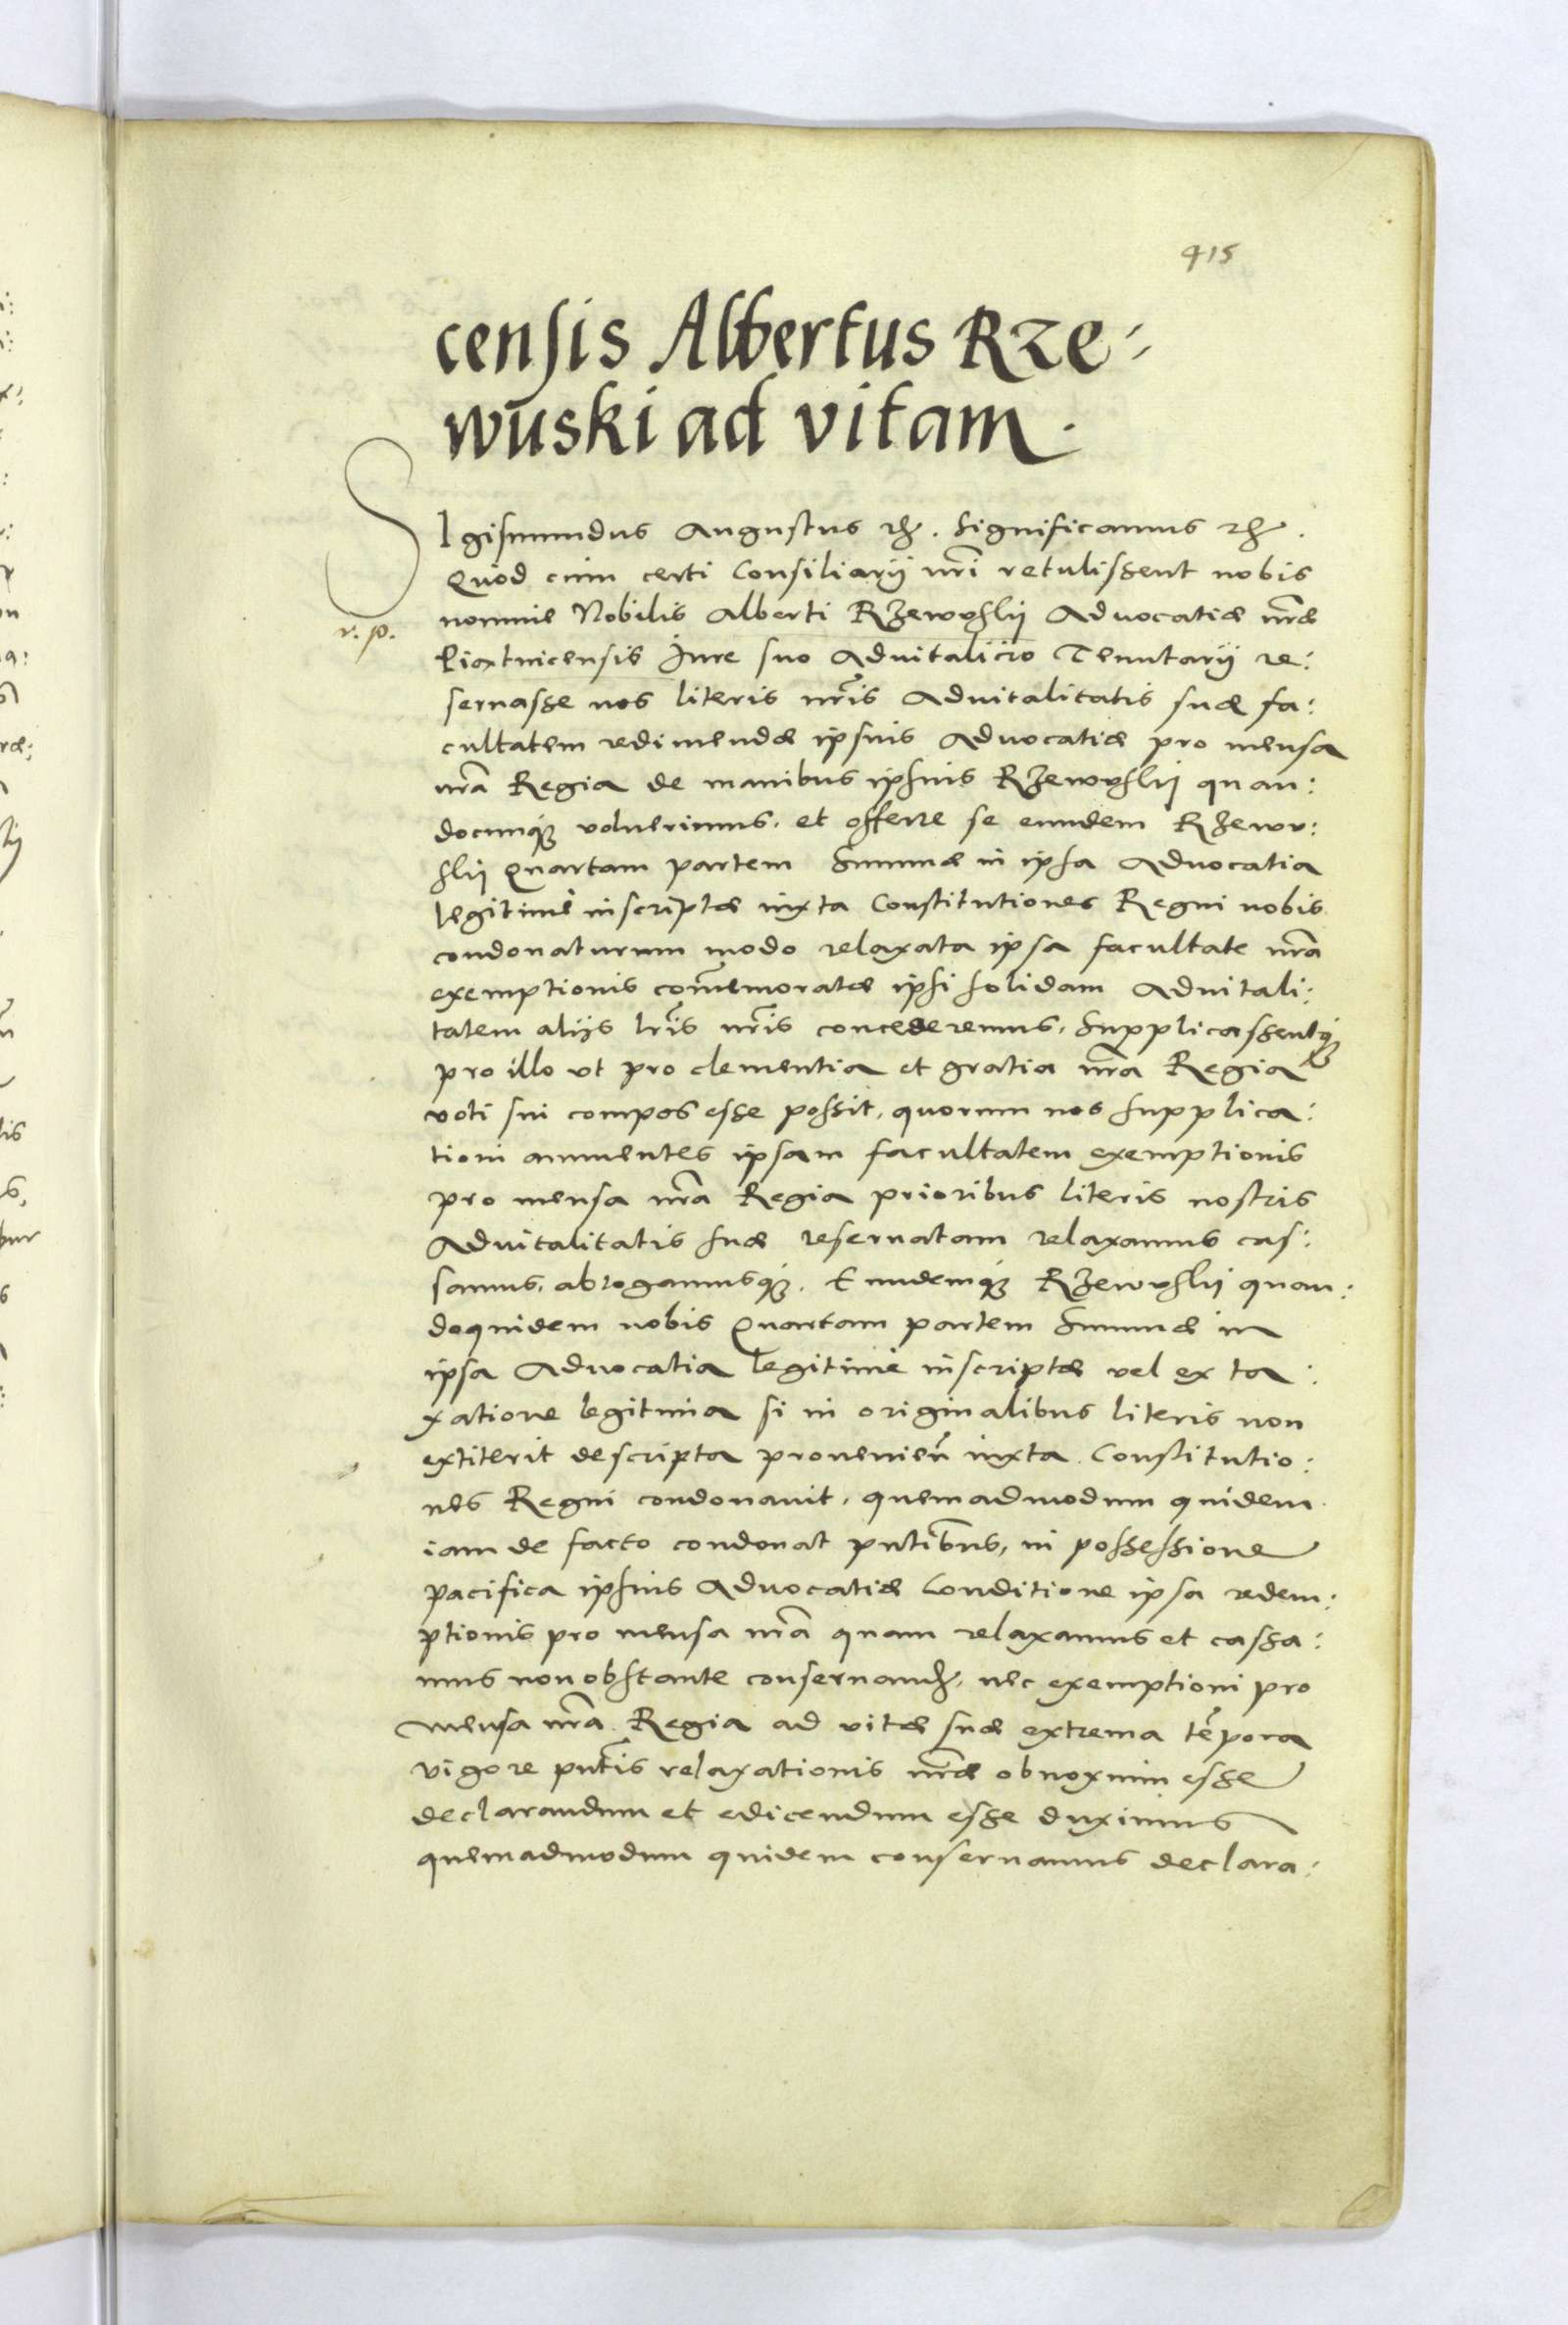 415
censis Albertus Rze:
wuski ad vitam.
Sigismundus Augustus etc. Significamus etc.
Quod cum certi Consiliarij nr̃i retulissent nobis
nomine Nobilis Alberti Rzewuskij Aduocatiæ nr̃æ
r. p.
Piaxtnicensis Jure suo Aduitalicio Tenutarij re:
seruasse nos literis nr̃is Aduitalitatis suæ fa:
cultatem redimendæ ipsius Aduocatiæ pro mensa
nr̃a Regia de manibus ipsius Rzewuskij quan:
documq́ue voluerimus, et offerre se eundem Rzewu:
skij Quartam partem Summæ in ipsa Aduocatia
legitimè inscriptæ iuxta Constitutiones Regni nobis
condonaturum modo relaxata ipsa facultate nr̃a
exemptionis com̃emoratæ ipsi solidam Aduitali:
tatem alijs lr̃is nr̃is concederemus, Supplicassentq́ue
pro illo vt pro clementia et gratia nr̃a Regia
voti sui compos esse possit, quorum nos supplica:
tioni annuentes ipsam facultatem exemptionis
pro mensa nr̃a Regia prioribus literis nostris
Aduitalitatis suæ reseruatam relaxamus cas:
samus, abrogamusq́ue. Eundemq́ue Rzewuskij quan:
doquidem nobis Quartam partem Summæ in
ipsa Aduocatia legitimè inscriptæ vel ex ta:
xatione legitima si in originalibus literis non
extiterit descripta prouenieñ iuxta Constitutio:
nes Regni condonauit, quemadmodum quidem
iam de facto condonat pñtibus, in possessione
pacifica ipsius Aduocatiæ Conditione ipsa redem:
ptionis pro mensa nr̃a quam relaxamus et cassa:
mus non obstante conseruand. nec exemptioni pro
mensa nr̃a Regia ad vitæ suæ extrema tẽpora
vigore pñtis relaxationis nr̃æ obnoxium esse
declarandum et edicendum esse duximus
quemadmodum quidem conseruamus declara: